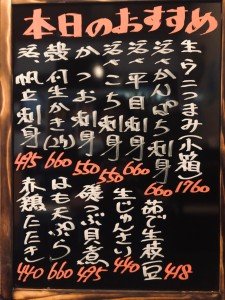 本日のおすすめ
生うにつまみ(小箱) 1760
活〆かんぱち刺身 660
活〆平目刺身 550
活〆こち刺身 550
かつお刺身 550
殻付生かき(2ケ) 660
活帆立刺身 495
茹で生枝豆 418
生じゅんさい 440
磯つぶ貝煮 495
はも天ぷら 660
木鶏たたき 440